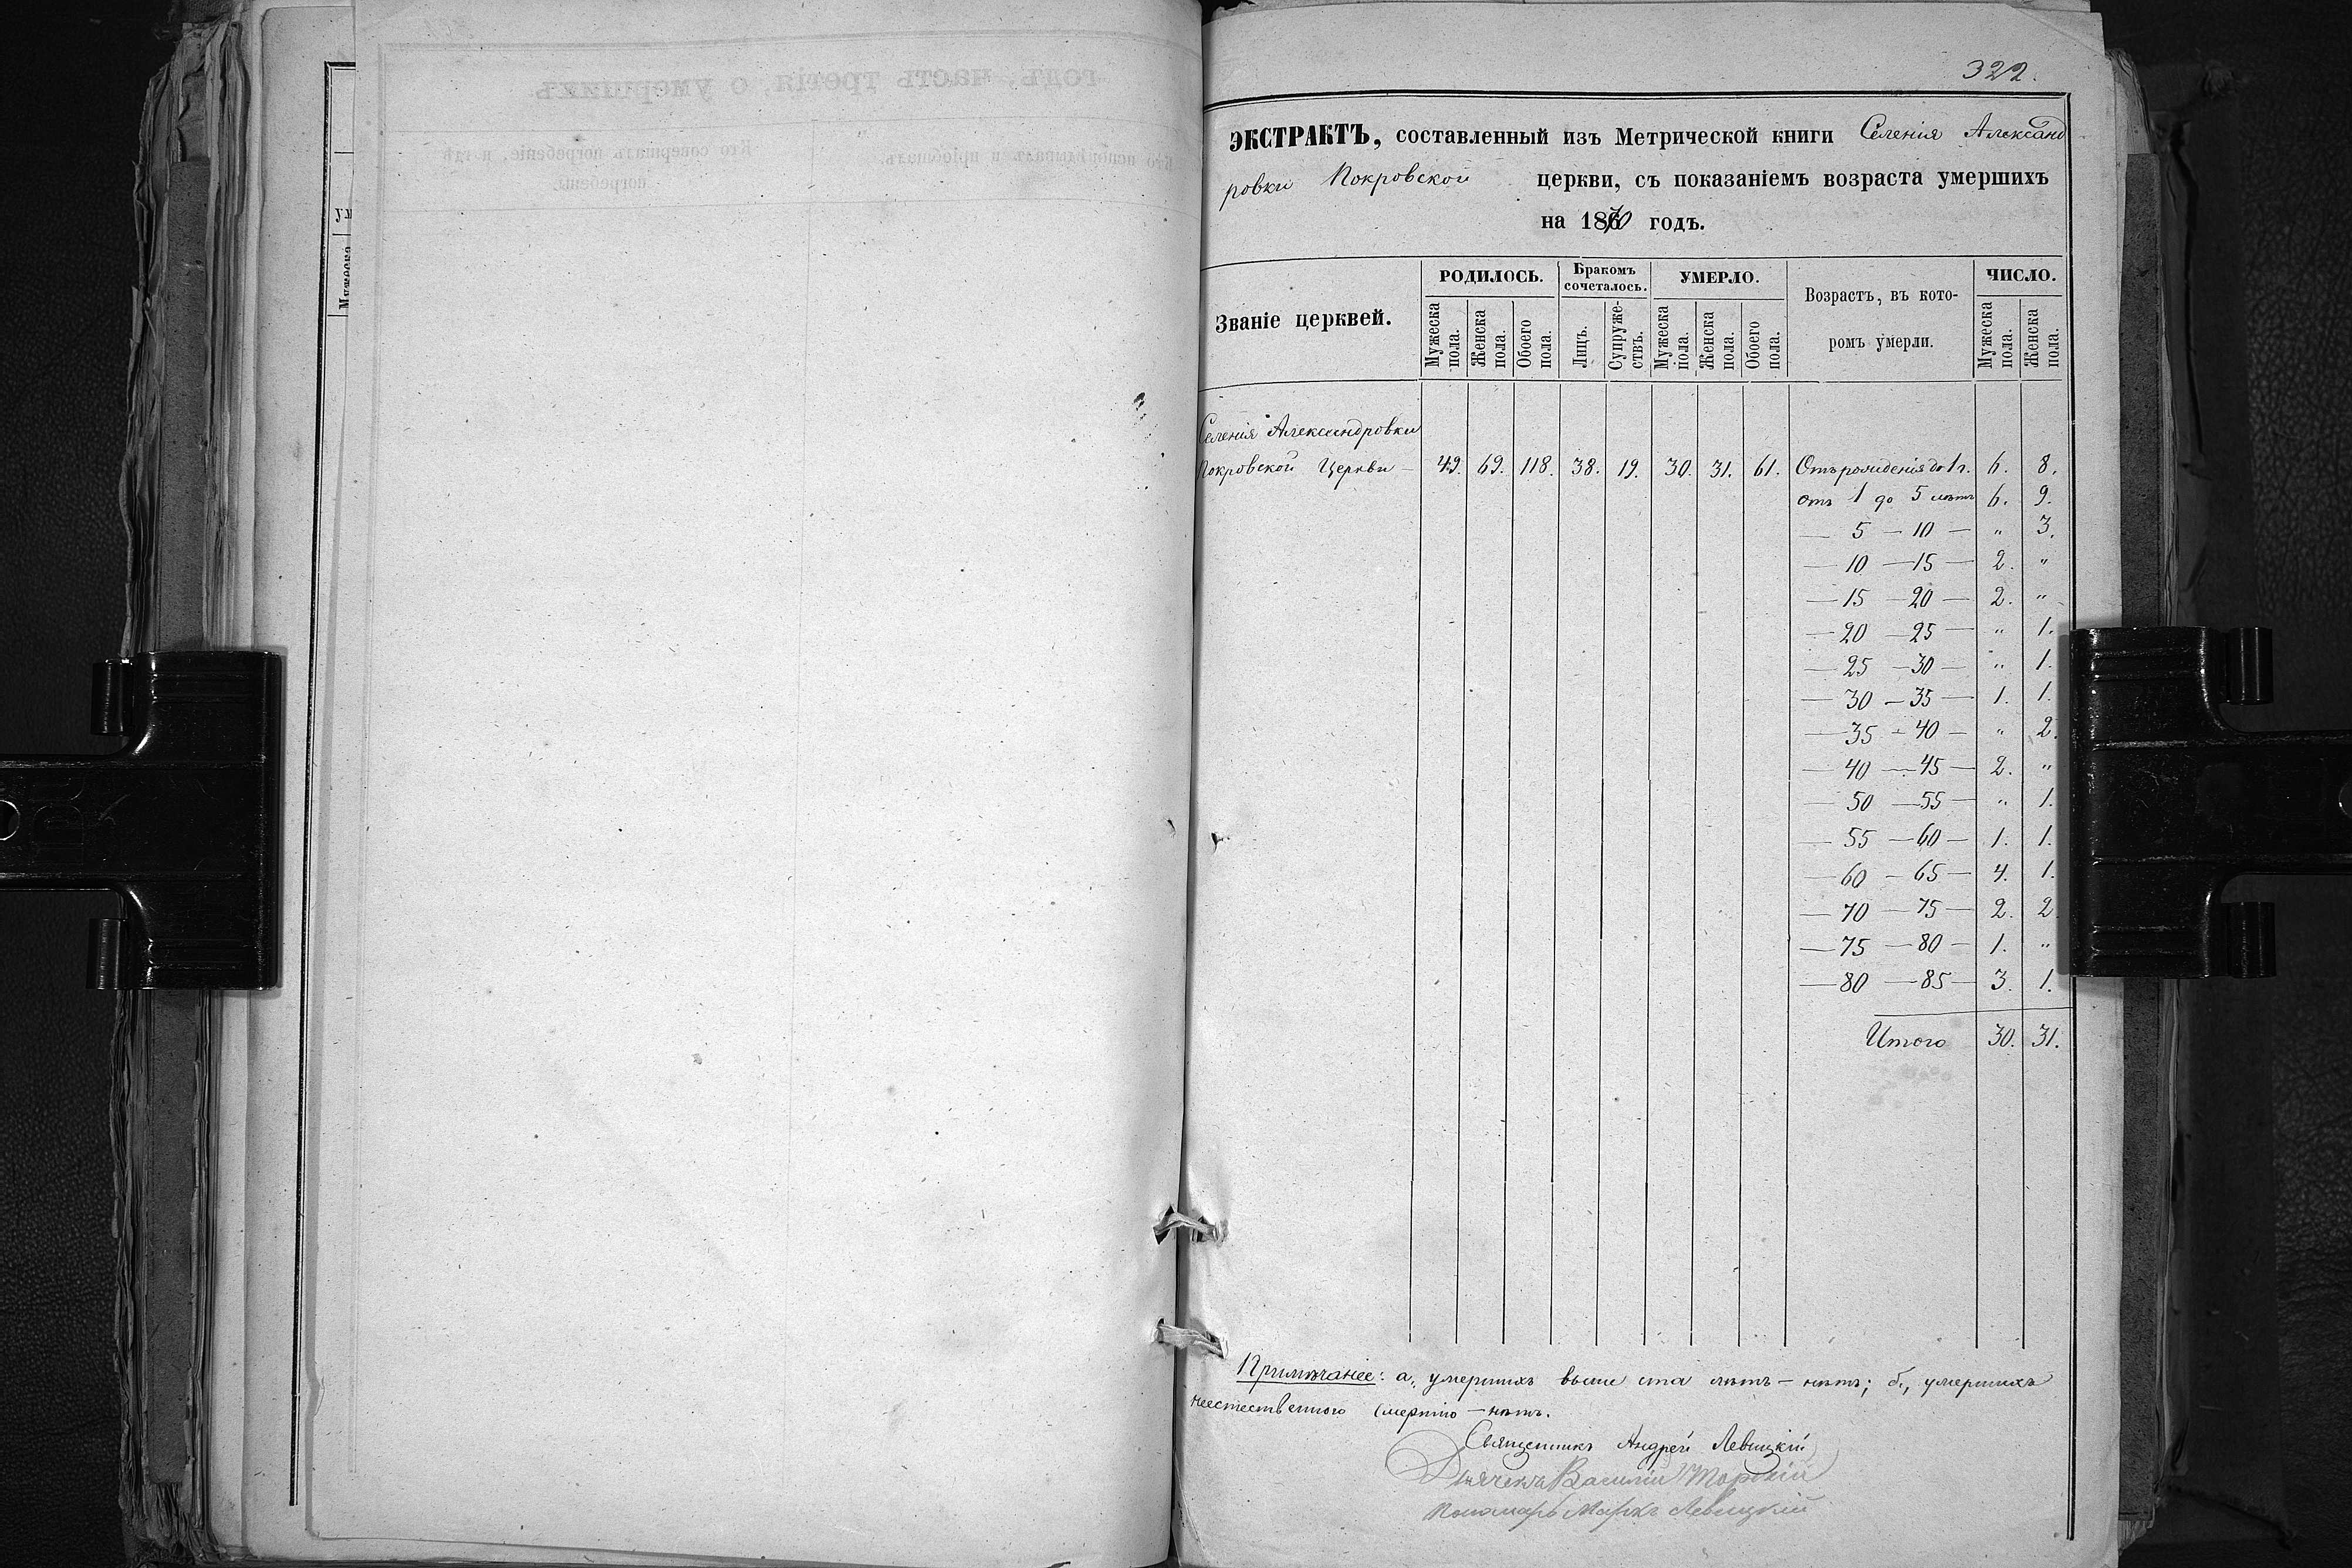 годъ, часть третія, о умершихъ
Кто исповѣдывалъ и пріобщалъ.
Кто совершалъ погребеніе, и гдѣ
погребены.
322.
ЭКСТРАКТЪ, составленный изъ Метрической книги Селенія Александ
ровки Покровской церкви, съ показаніемъ возраста умершихъ
на 1870 годъ.
Званіе церквей.
РОДИЛОСЬ.
Бракомъ
сочеталось.
УМЕРЛО.
Возрастъ, въ кото-
ромъ умерли.
ЧИСЛО.
Мужеска пола.
Женска пола.
Обоего пола.
Лицъ.
Супруже-
ствъ.
Мужеска пола.
Женска пола.
Обоего пола.
Мужеска пола.
Женска пола.
Селенія Александровки
Покровской Церкви — 49. 69. 118. 38. 19. 30. 31. 61. Отъ рожденія до 1 г. 6. 8.
отъ 1 до 5 лѣтъ 6. 9.
— 5 — 10 — „ 3.
— 10 — 15 — 2. „
— 15 — 20 — 2. „
— 20 — 25 — „ 1.
— 25 — 30 — „ 1.
— 30 — 35 — 1. 1.
— 35 — 40 — „ 2.
— 40 — 45 — 2. „
— 50 — 55 — „ 1.
— 55 — 60 — 1. 1.
— 60 — 65 — 4. 1.
— 70 — 75 — 2. 2.
— 75 — 80 — 1. „
— 80 — 85 — 3. 1.
Итого 30. 31.
Примѣчаніе: а, умершихъ выше ста лѣтъ — нѣтъ; б, умершихъ
неестественною смертію — нѣтъ.
Священникъ Андрей Левицкій
Дьячекъ Василій Торскій
Пономарь Маркъ Левицкій